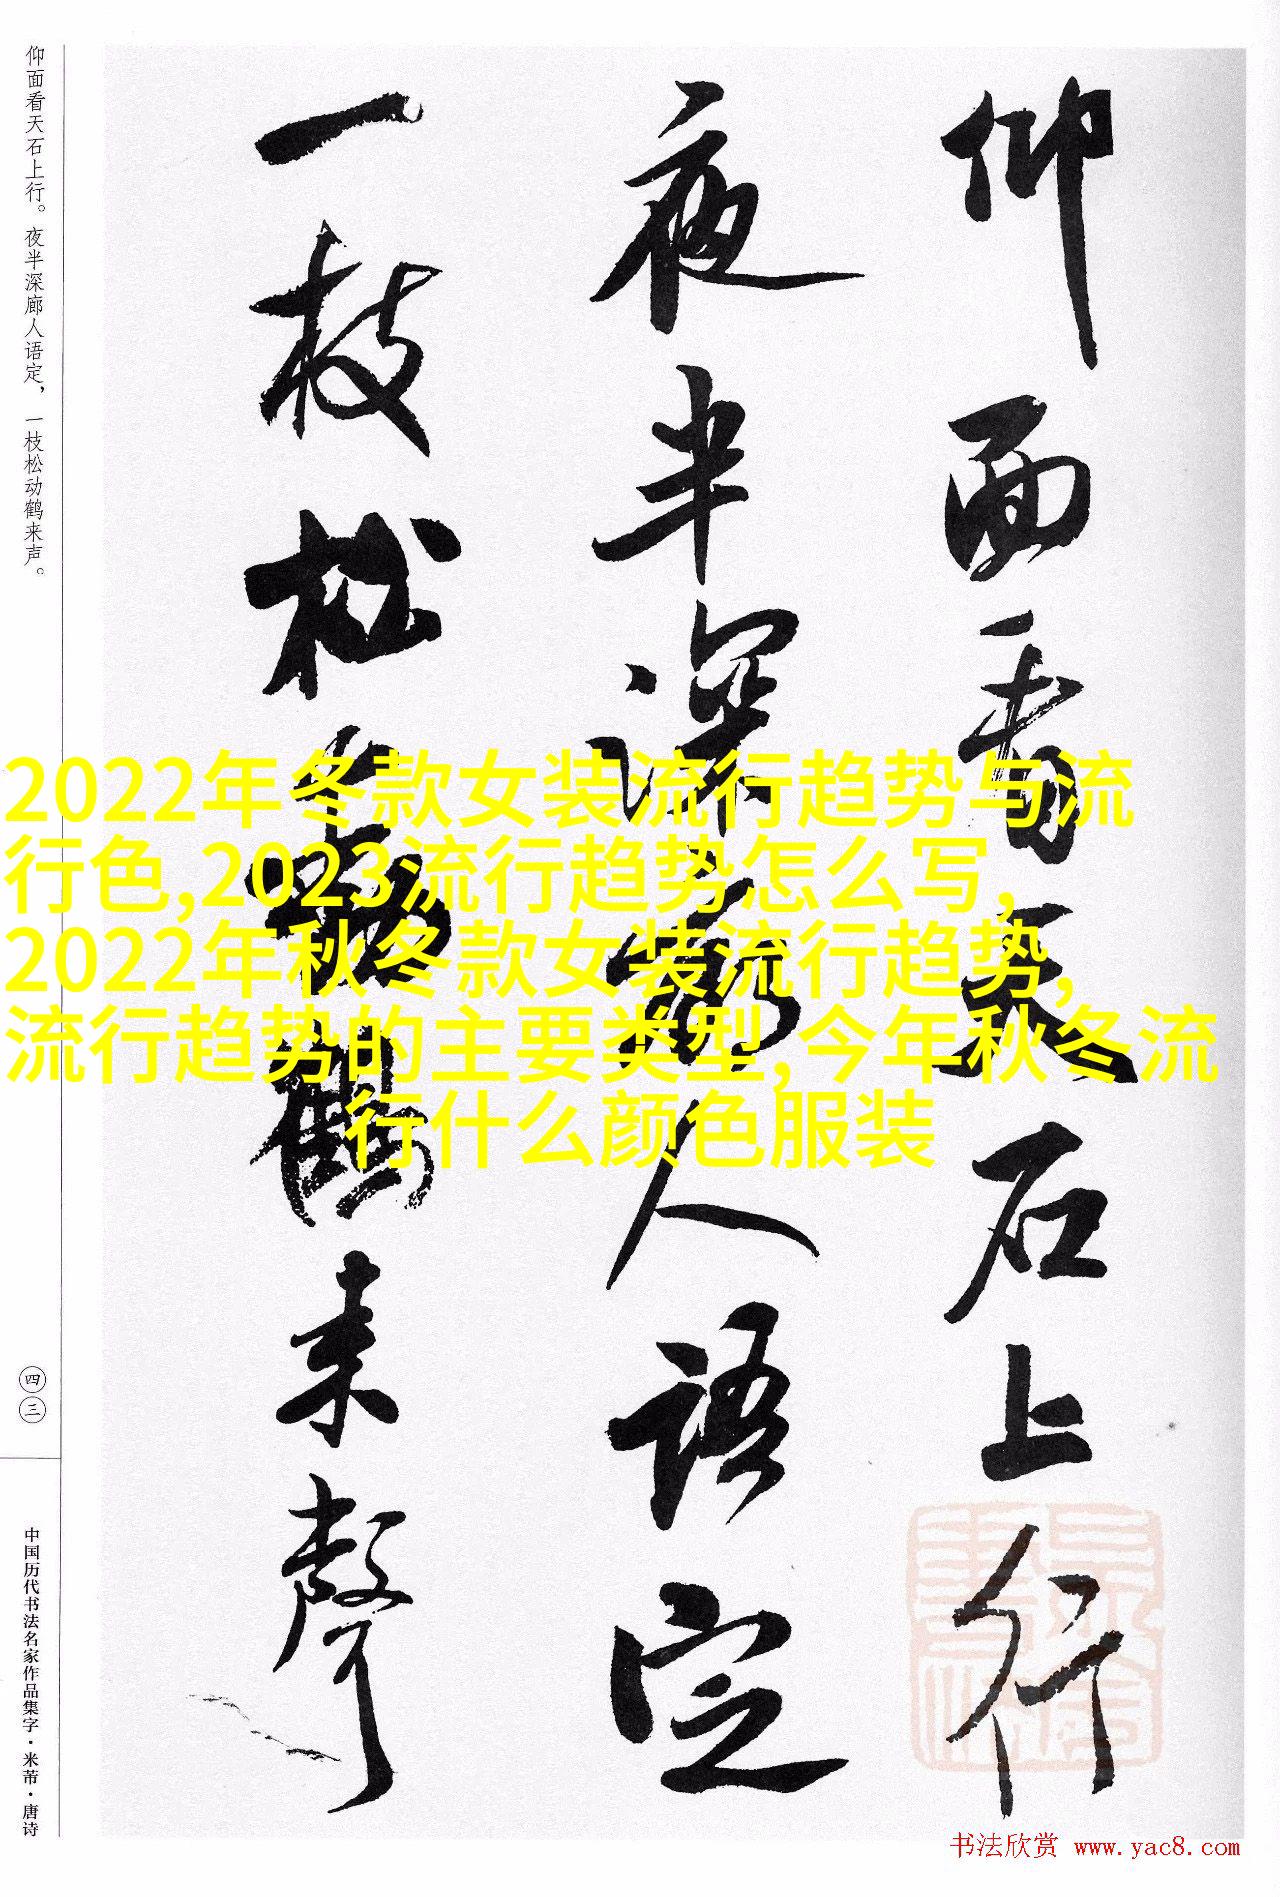 仰面看天石上行
夜半深廊人语定
一枝松动鹤来聲
仰面看天石上行。夜半深廊人语定，一枝松动鹤来声。
四三
中国历代书法名家作品集字·米芾·唐诗
2022年冬款女装流行趋势与流
行色,2023流行趋势怎么写,
2022年秋冬款女装流行趋势,
流行趋势的主要类型,今年秋冬流
行什么颜色服装
书法欣赏 www.yac8.com